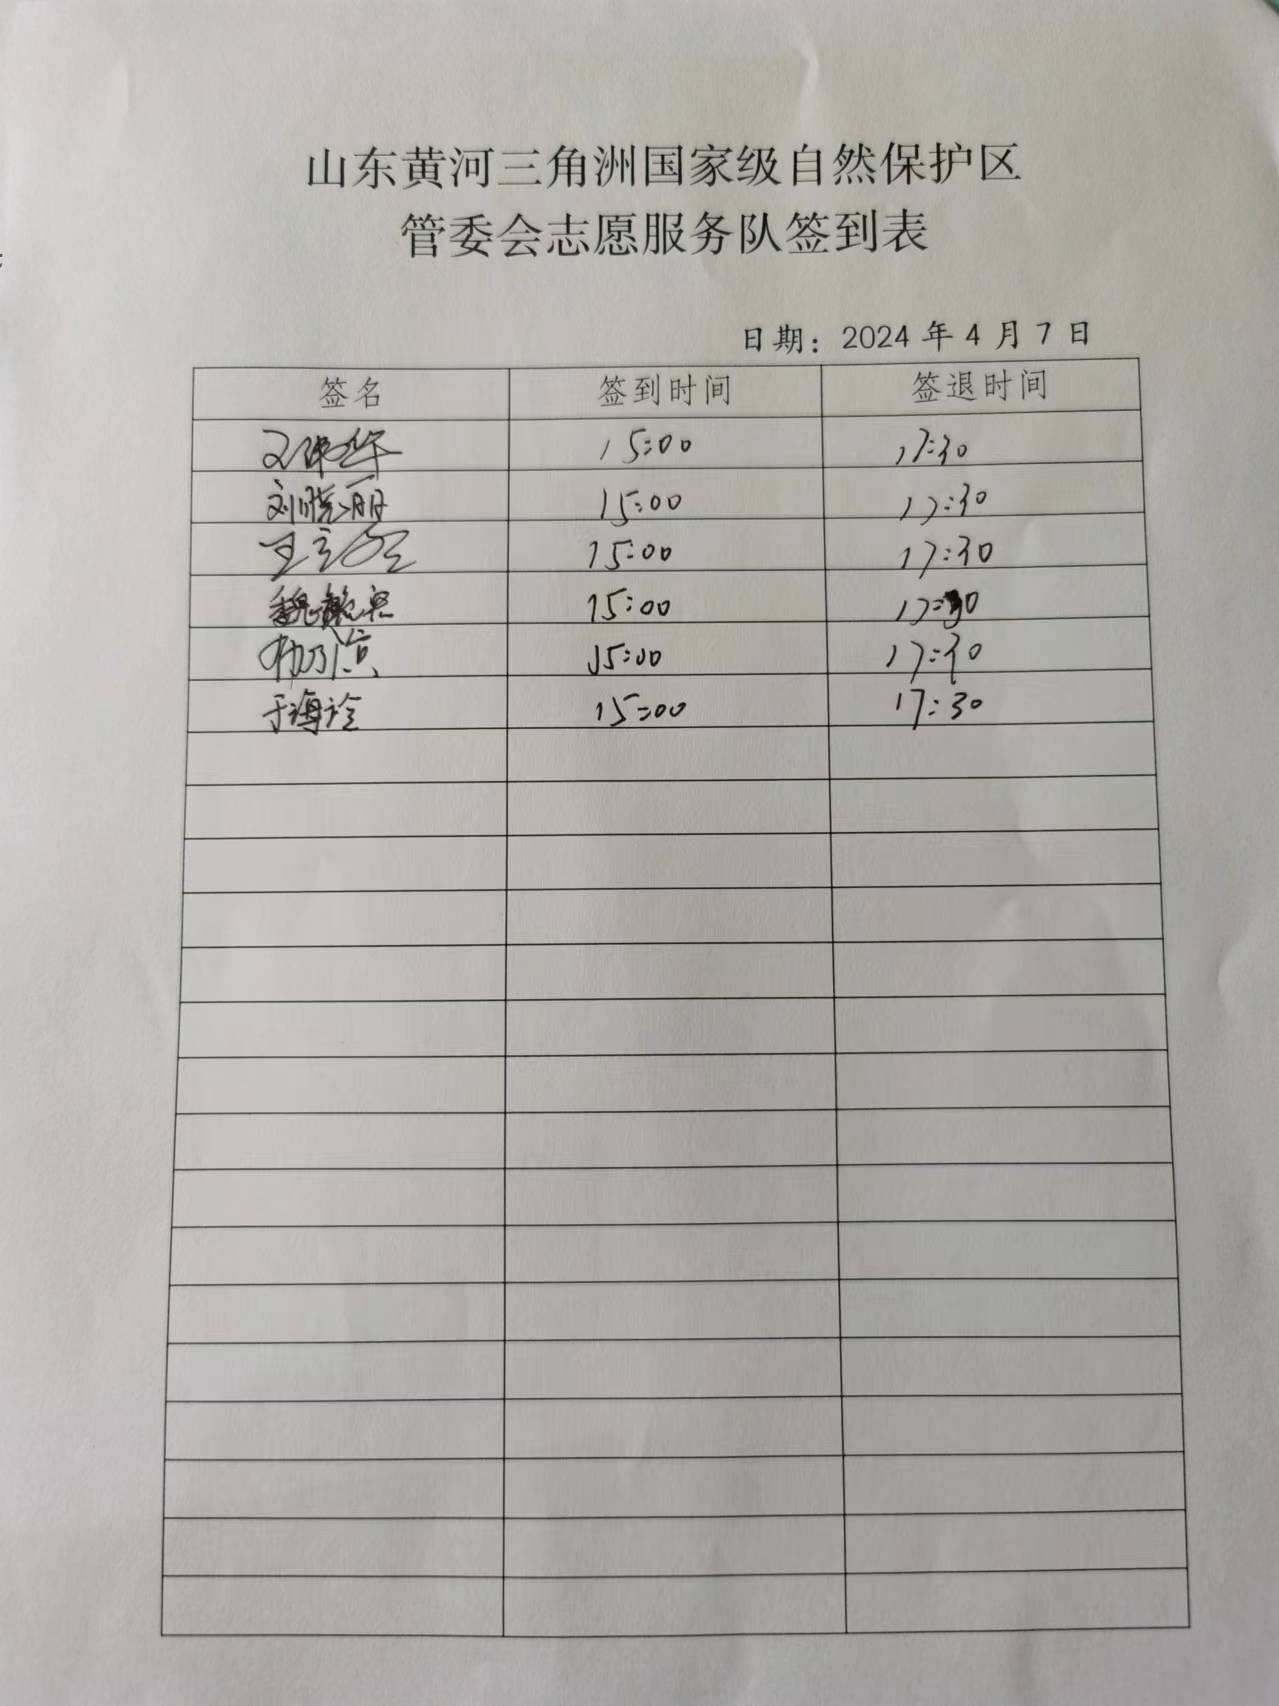 山东黄河三角洲国家级自然保护区
管委会志愿服务队签到表
日期：2024年4月7日
签名 签到时间 签退时间
15:00 17:30
刘晓丽 15:00 17:30
15:00 17:30
15:00 17:30
15:00 17:30
于海玲 15:00 17:30